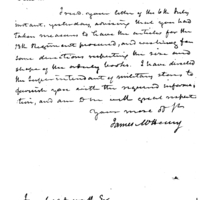 I rec'd your letter of the 6th July
instant, yesterday advising that you had
taken measures to have the articles for the
13th Regiment procured, and wishing for
some directions respecting the size and
shape of the orderly books. I have directed
the Superintendent of military stores to
furnish you with the required informa-
tion, and am Sir with great respect
Your most ob St
James McHenry